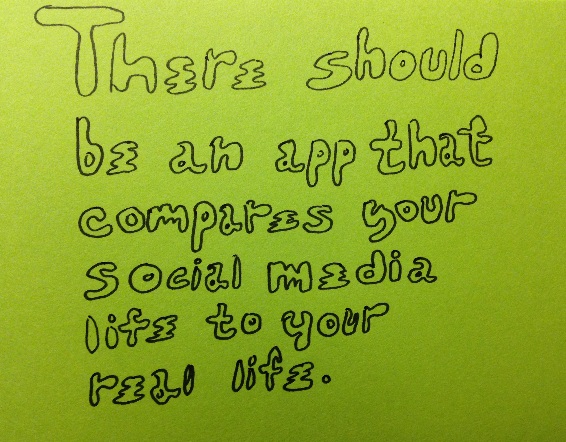 There should
be an app that
compares your
social media
life to your
real life.